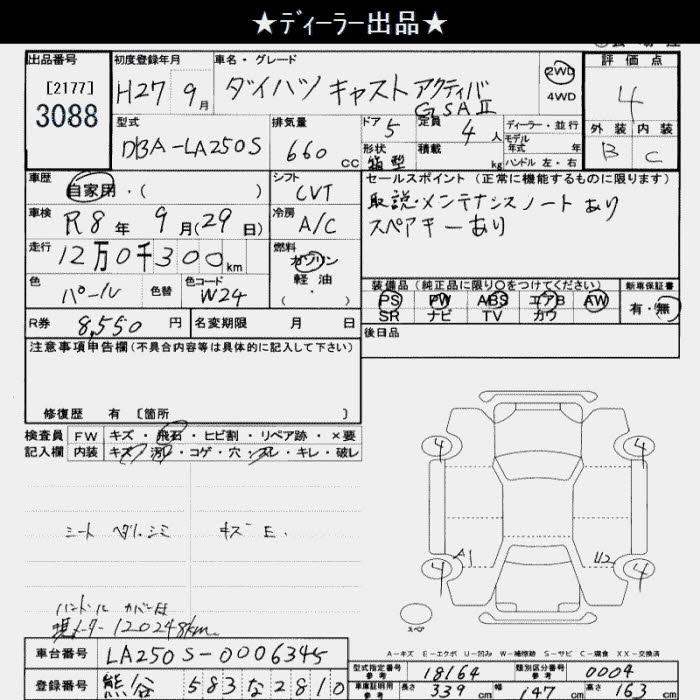 ★ディーラー出品★
出品番号
[2177]
3088
初度登録年月
H27 9月
車名・グレード
ダイハツ キャスト アクティバ
G SAⅡ
2WD
4WD
評価点
4
外装 内装
B C
型式
DBA-LA250S
排気量
660 CC
ドア 5
定員 4人
形状 箱型
積載 kg
ディーラー・並行
モデル年式 年
ハンドル 左・右
車歴
自家用・( )
シフト
CVT
セールスポイント (正常に機能するものに限ります)
取説・メンテナンスノートあり
スペアキーあり
車検
R8年 9月(29日)
冷房
A/C
走行
12万0千300km
燃料
ガソリン
軽油
( ・ )
色
パール
色替
色コード
W24
装備品 (純正品に限り○をつけてください)
PS PW ABS エアB AW
SR ナビ TV カワ
新車保証書
有・無
R券 8,550円
名変期限 月 日
後日品
注意事項申告欄(不具合内容等は具体的に記入して下さい)
修復歴 有 〔箇所 〕
検査員記入欄
FW キズ・飛石・ヒビ割・リペア跡・×要
内装 キズ・汚レ・コゲ・穴・スレ・キレ・破レ
シート ヘタリ.シミ キズ E.
ハンドル カバー付
現メーター 120248km
4 4
A1 U2
4 4
スペア
A-キズ E-エクボ U-凹み W-補修跡 S-サビ C-腐食 XX-交換済
車台番号 LA250S-0006345
登録番号 熊谷 583な2810
型式指定番号 参考 18164
類別区分番号 参考 0004
車庫証明用 参考 長さ 339cm 幅 147cm 高さ 163cm